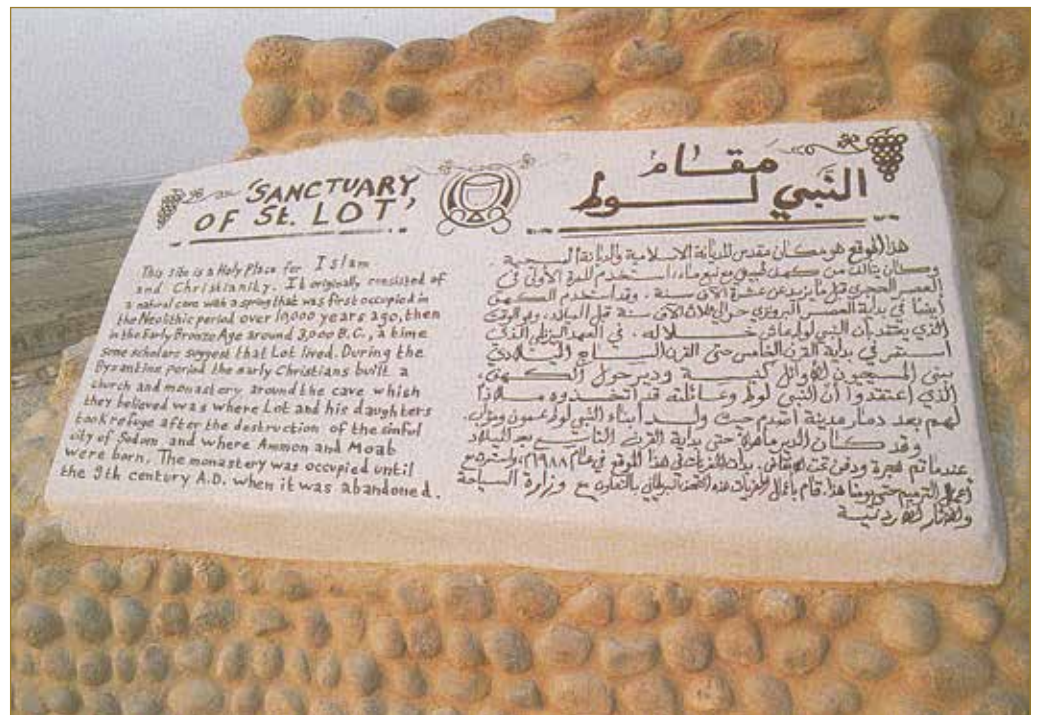 'SANCTUARY
OF St. LOT'
This site is a Holy Place for Islam
and Christianity. It originally consisted of
a natural cave with a spring that was first occupied in
the Neolithic period over 10,000 years ago, then
in the Early Bronze Age around 3,000 B.C., a time
some scholars suggest that Lot lived. During the
Byzantine period the early Christians built a
church and monastery around the cave which
they believed was where Lot and his daughters
took refuge after the destruction of the sinful
city of Sodom and where Ammon and Moab
were born. The monastery was occupied until
the 9th century A.D. when it was abandoned.
مقام
النبي لوط
هذا الموقع هو مكان مقدس للديانة الاسلامية والديانة المسيحية .
وكان يتألف من كهف طبيعي مع نبع ماء، استخدم للمرة الأولى في
العصر الحجري قبل ما يزيد عن عشرة الآف سنة . وقد استخدم الكهف
أيضا في بداية العصر البرونزي حوالي ثلاث الآف سنة قبل الميلاد، وهو الوقت
الذي يعتقد أن النبي لوط عاش خلاله . في العهد البيزنطي الذي
استمر في بداية القرن الخامس حتى القرن السابع الميلادي
بنى المسيحيون الأوائل كنيسة ودير حول الكهف،
الذي إعتقدوا أن النبي لوط وعائلته قد اتخذوه ملاذا
لهم بعد دمار مدينة سدوم حيث ولد أبناء النبي لوط عمون ومؤاب.
وقد كان الدير مأهولا حتى بداية القرن التاسع بعد الميلاد
عندما تم هجره ودفن تحت الأنقاض. بدأت الحفريات في هذا الموقع في عام ١٩٨٨م، واستمرت مع
أعمال الترميم حتى يومنا هذا. قام بأعمال الحفريات هذه المتحف البريطاني بالتعاون مع وزارة السياحة
والآثار الأردنية